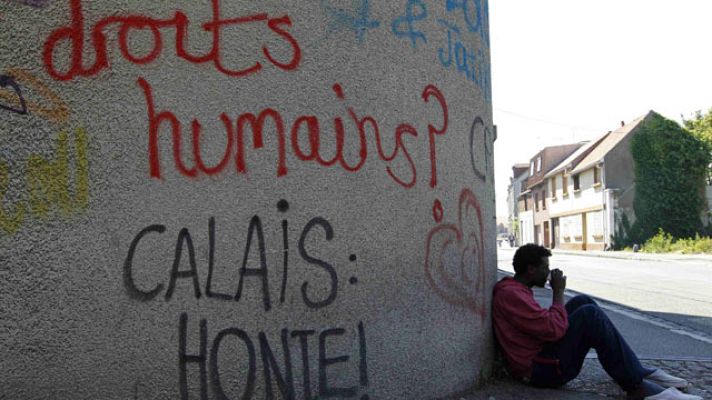 droits
humains?
CALAIS:
HONTE!
&